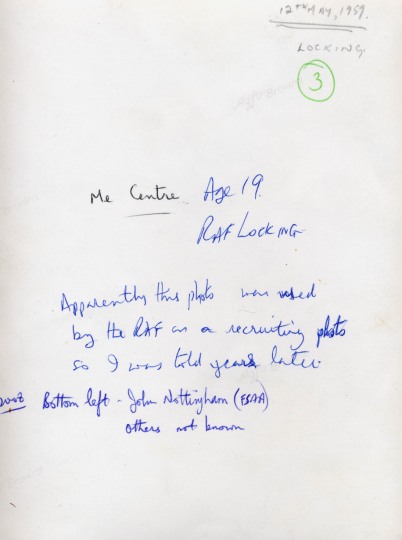 12TH MAY, 1959.
LOCKING
3
Me Centre Age 19.
RAF LOCKING
Apparently this photo was used
by the RAF as a recruiting photo
so I was told years later.
2008 Bottom left - John Nottingham
others not known